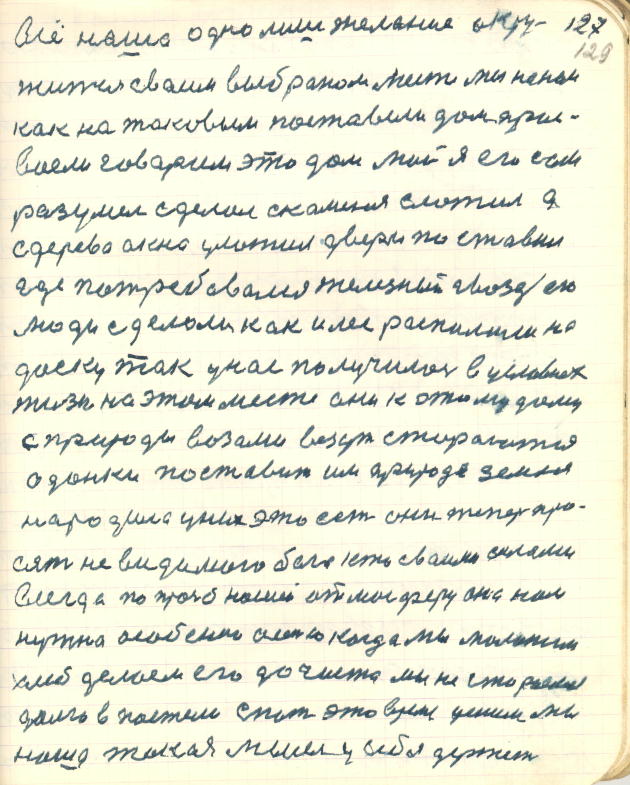 Всё наша одно лиш желание окру- 127
129
житя своим выбраном месте мы начали
как на таковым поставели дом, при-
воели говорим это дом мой я его сам
разумел сделал с каменя сложил а
с дерева окна уложил двери поставил
где потребовался железный гвозд его
люди сделали как и лес распилили на
доску так у нас получилос в условиях
жизн на этом месте они к этому дому
с природы возами везут стараются
одонки поставит им природе земля
народила у них это ест они тепер про-
сят не видимого бога кто своими силами
всегда по прозб нашей атмосферу она нам
нужна особенно осеню когда мы молотим
хлеб делаем его до чиста мы не стараемся
долго в постели спат это время ценим мы
наша такая мысел у себя держит